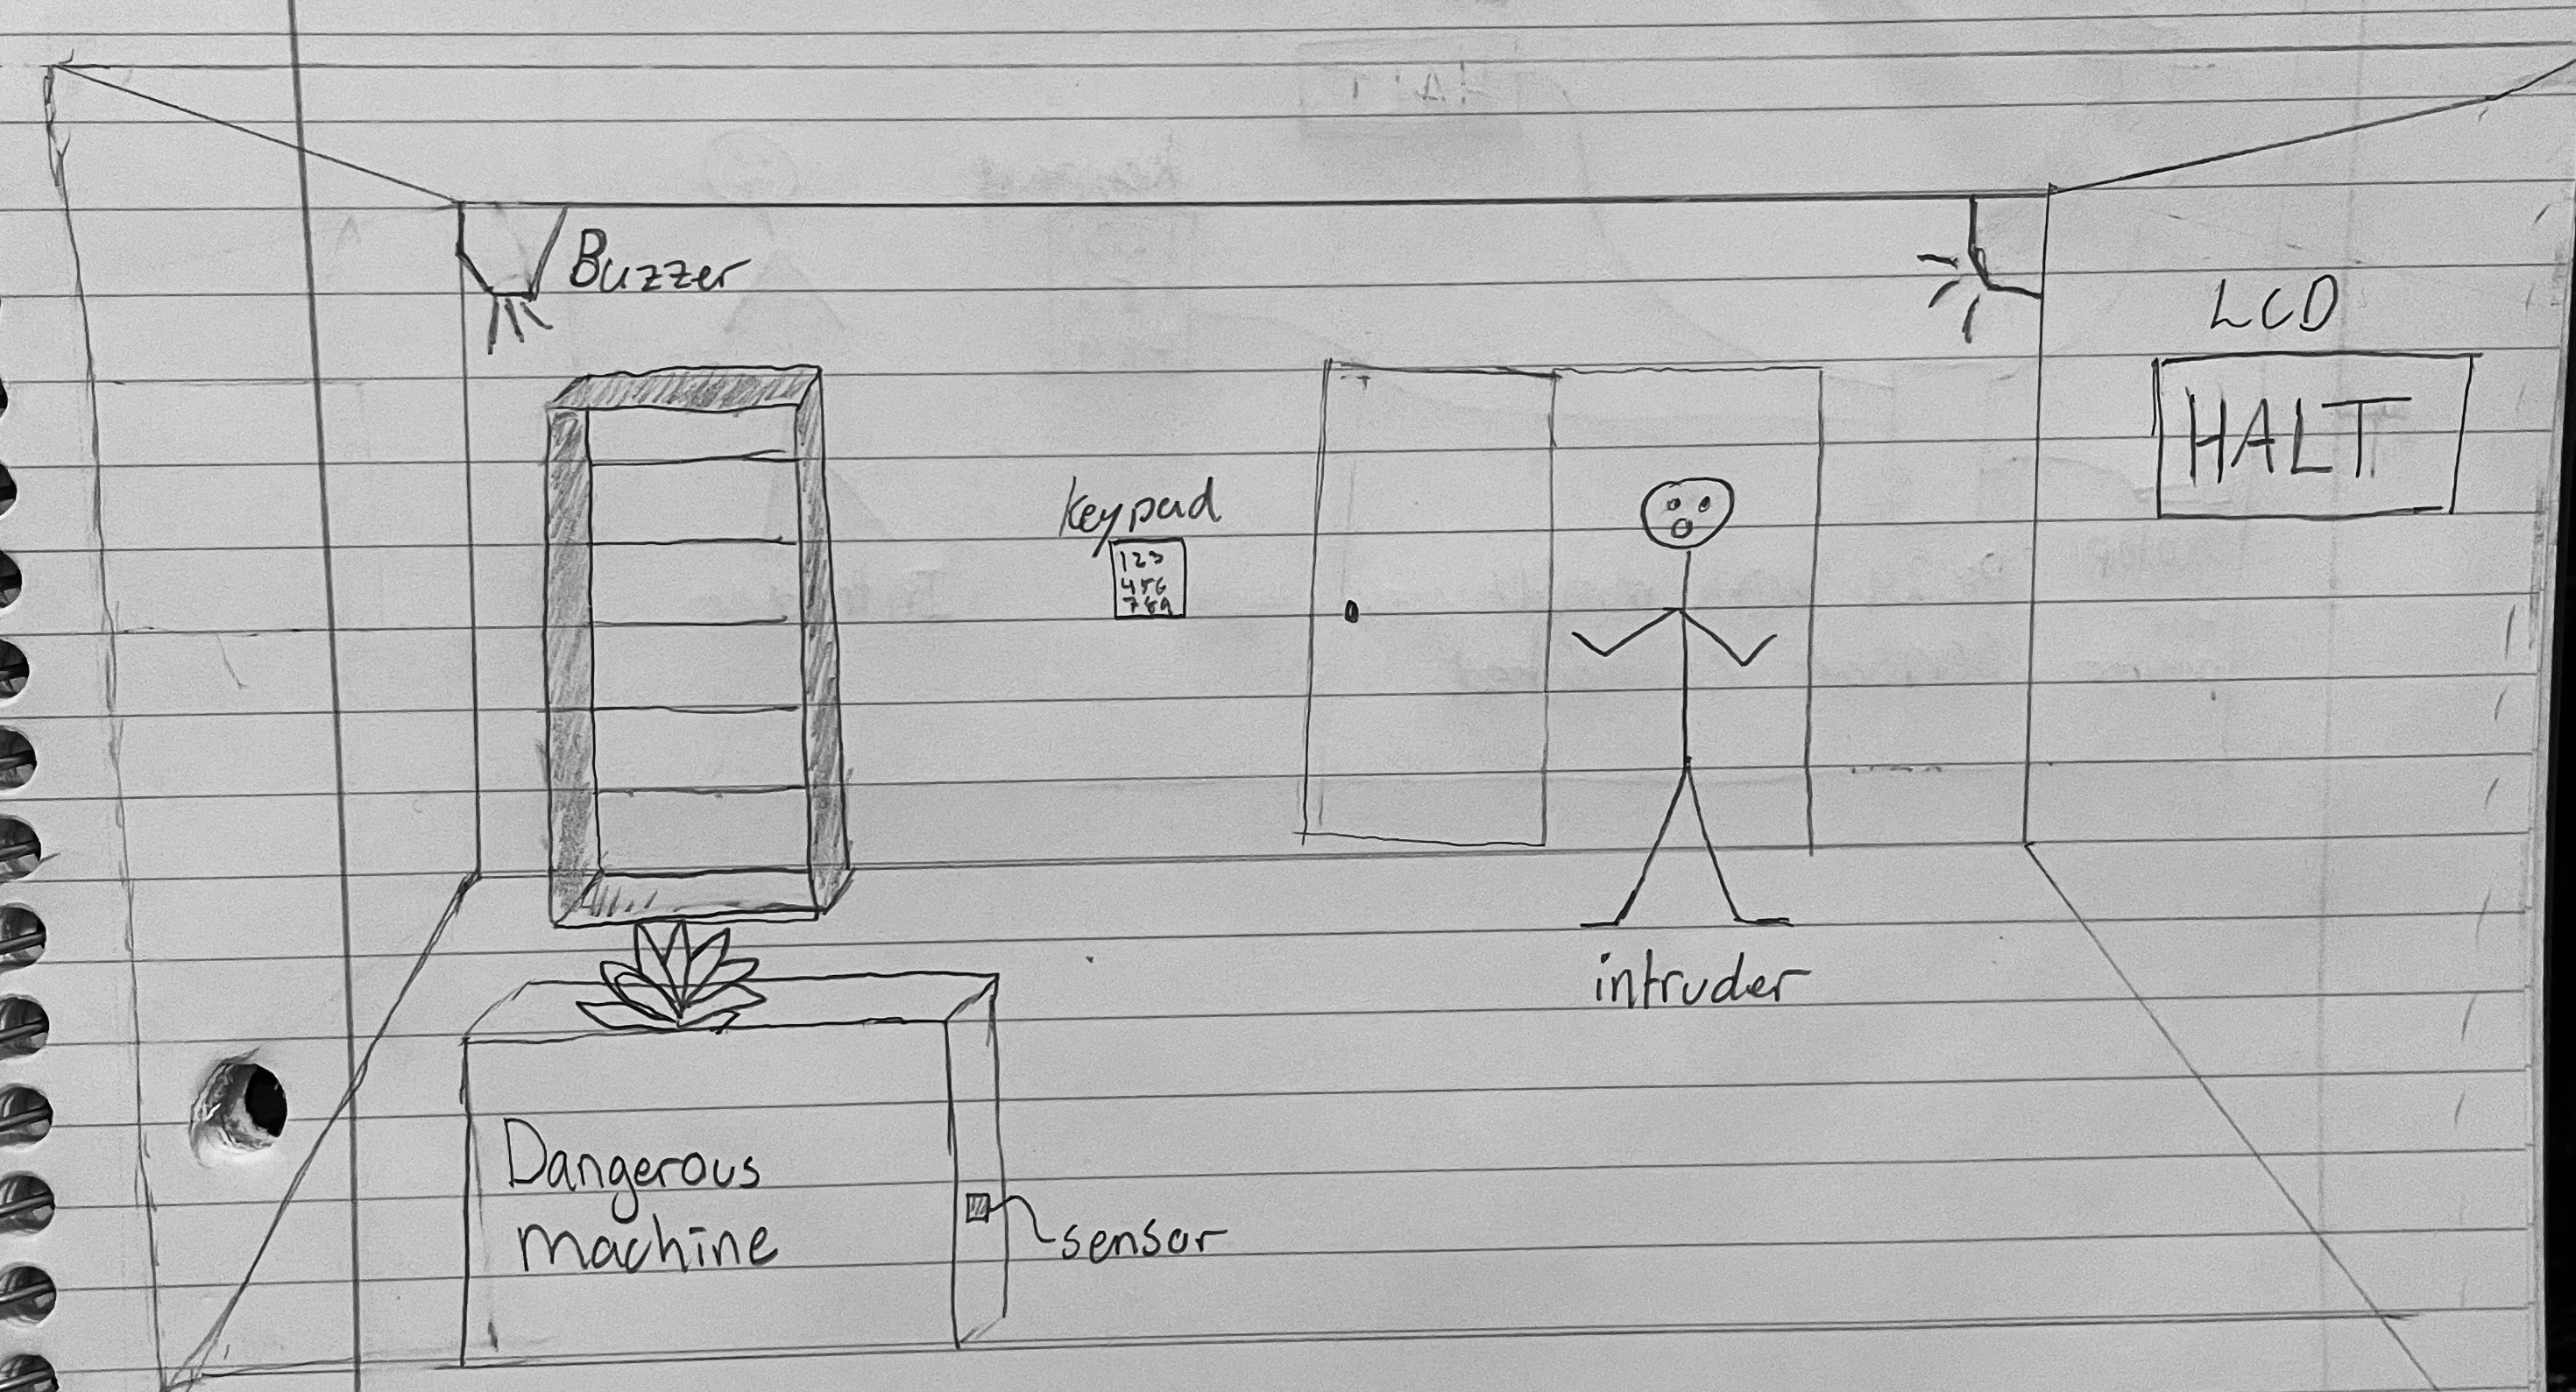 Buzzer
LCD
HALT
keypad
123
456
789
intruder
Dangerous
machine
sensor